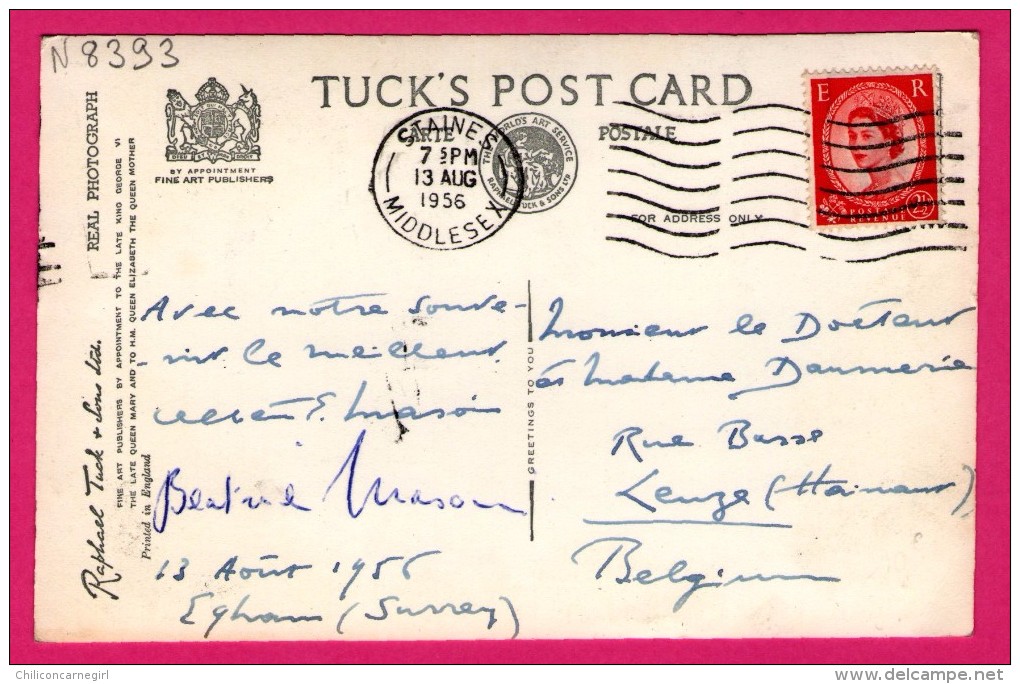 N 8393
TUCK'S POST CARD
CARTE POSTALE
THE WORLD'S ART SERVICE
RAPHAEL TUCK & SONS LTD
BY APPOINTMENT
FINE ART PUBLISHERS
STAINES
7 PM
13 AUG
1956
MIDDLESEX
FOR ADDRESS ONLY
E R
POSTAGE
REVENUE
2½
REAL PHOTOGRAPH
Raphael Tuck & Sons Ltd.
FINE ART PUBLISHERS BY APPOINTMENT TO THE LATE KING GEORGE VI
THE LATE QUEEN MARY AND TO H.M. QUEEN ELIZABETH THE QUEEN MOTHER
Printed in England
Avec notre souve-
-nir le meilleur
E. Mason
Beatrice Mason
13 Août 1956
Egham (Surrey)
GREETINGS TO YOU
Monsieur le Docteur
et Madame Daumerie
Rue Basse
Leuze (Hainaut)
Belgium
Chiliconcarnegirl
delcampe.net